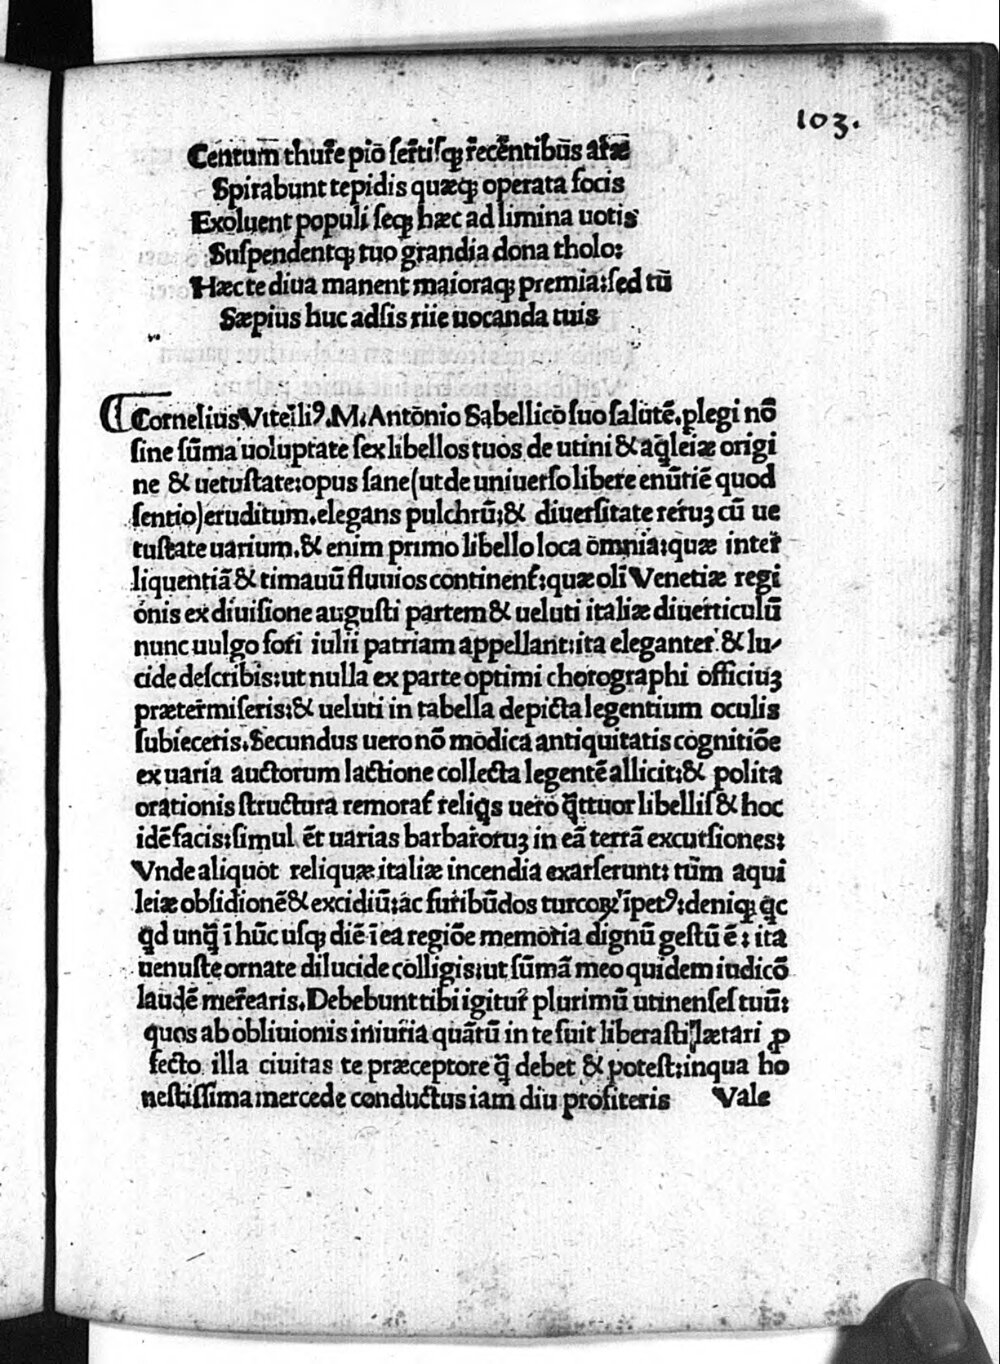 103.
Centum̄ thur̄e piō ser̄tisq̃ r̄ecēntibūs ar̄æ
Spirabunt tepidis quæq̃ operata focis
Exoluent populi seq̃ hæc ad limina uotis
Suspendentq̃ tuo grandia dona tholo:
Hæc te diua manent maioraq̃ premia:sed tū
Sæpius huc adsis riie uocanda tuis
Cornelius Vitelliꝰ.M.Antōnio Sabellicō suo salutē.plegi nō
sine sūma uoluptate sex libellos tuos de utini & aq̄leiæ origi
ne & uetustate:opus sane(ut de uniuerso libere enūtiē quod
sentio)eruditum.elegans pulchrū:& diuersitate reruꝫ cū ue
tustate uarium.& enim primo libello loca ōmnia:quæ inter
liquentiā & timauū fluuios continent̃:quæ oli Venetiæ regi
onis ex diuisione augusti partem & ueluti italiæ diuerticulū
nunc uulgo fori iulii patriam appellant:ita eleganter & lu-
cide describis:ut nulla ex parte optimi chorographi officiuꝫ
prætermiseris:& ueluti in tabella depicta legentium oculis
subieceris.Secundus uero nō modica antiquitatis cognitiōe
ex uaria auctorum lactione collecta legentē allicit:& polita
orationis structura remorat̃ reliq̃s uero q̃ttuor libellis & hoc
idē facis:simul et uarias barbaroruꝫ in eā terrā excursiones:
Vnde aliquot reliquæ italiæ incendia exarserunt: tum aqui
leiæ obsidionē & excidiū:ac furibūdos turcoꝝ īpetꝰ:deniq̃ q̃c
q̃d unq̃ ī hūc usq̃ diē ī ea regiōe memoria dignū gestū ē: ita
uenuste ornate dilucide colligis:ut sūmā meo quidem iudicō
laudē merearis.Debebunt tibi igitur plurimū utinenses tuū:
quos ab obliuionis iniuria quātū in te fuit liberasti lætari ꝓ
fecto illa ciuitas te præceptore q̃ debet & potest:inqua ho
nestissima mercede conductus iam diu profiteris Vale